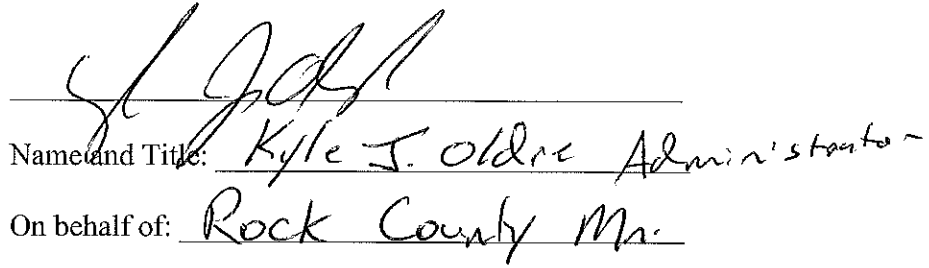 Name and Title: Kyle J. Oldre Administrator
On behalf of: Rock County Mn.